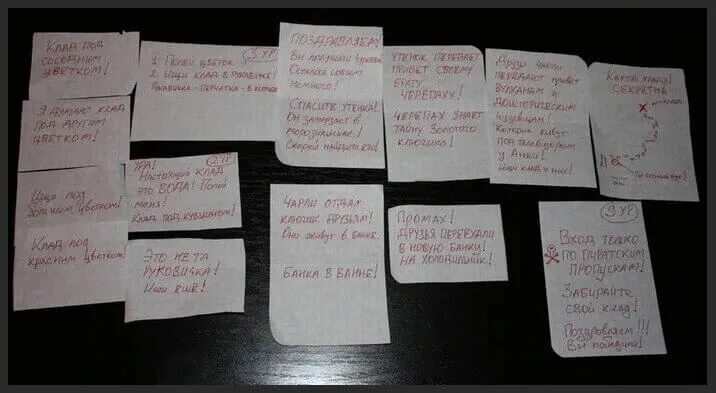 КЛАД ПОД
СОСЕДНИМ
ЦВЕТКОМ!
Я ДУМАЮ КЛАД
ПОД ДРУГИМ
ЦВЕТКОМ!
Ищи под
большим цветком!
Клад под
красним цветком!
3 УР
1. Полей цветок
2. Ищи клад в рукавичке!
Рукавичка - перчатка - в
УРА!
2 УР
Настоящий клад
это ВОДА! Полей
меня!
Клад под кувшином!
Это не та
руковичка!
Ищи ещё!
ПОЗДРАВЛЯЕМ!
Вы получили
Осталось совсем
немного!
Спасите утенка!
Он замерзает в
морозильнике!
Скорей найдите его!
Чарли отдал
ключик друзьям!
Они живут в банке.
Банка в ванне!
Утенок передает
привет своему
брату
черепаху!
Черепах знает
тайну золотого
ключика!
Промах!
Друзья переехали
в новую банку!
На холодильник!
Друзья Чарли
передают привет
вулканам и
доисторическим
Которые живут
под телевизором
у Анки!
Ищи клад у них!
Карта клада!
Секретна
клад
Ты стоишь тут!
9 УР
Вход только
по пиратским
пропускам!
Забирайте
свой клад!
Поздровляем!!!
Вы победили!